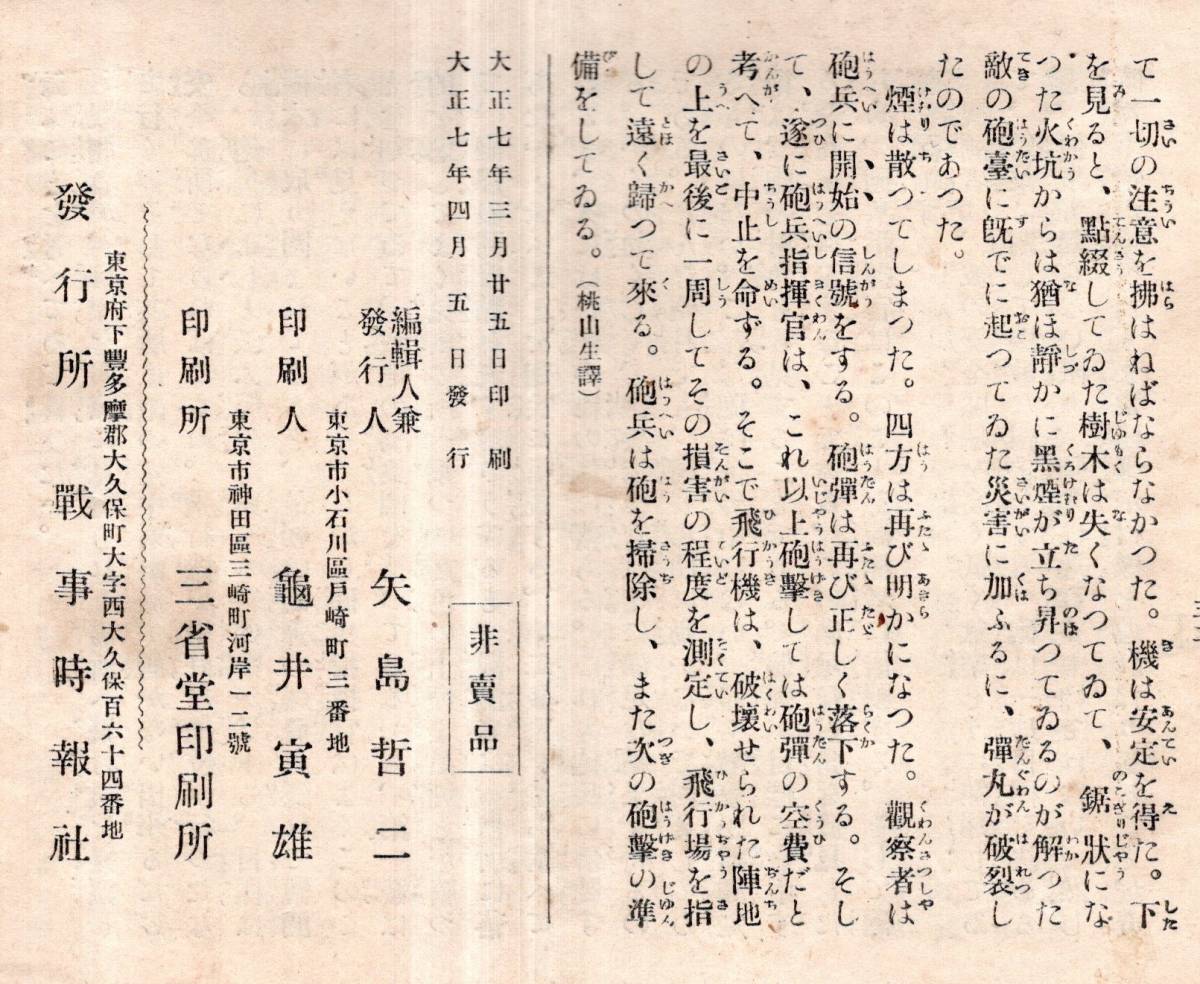 て一切の注意を拂はねばならなかつた。機は安定を得た。下
を見ると、點綴してゐた樹木は失くなつてゐて、鋸狀にな
つた火坑からは猶ほ靜かに黑煙が立ち昇つてゐるのが解つた
敵の砲臺に旣でに起つてゐた災害に加ふるに、彈丸が破裂し
たのであつた。
煙は散つてしまつた。四方は再び明かになつた。觀察者は
砲兵に開始の信號をする。砲彈は再び正しく落下する。そし
て、遂に砲兵指揮官は、これ以上砲擊しては砲彈の空費だと
考へて、中止を命ずる。そこで飛行機は、破壞せられた陣地
の上を最後に一周してその損害の程度を測定し、飛行場を指
して遠く歸つて來る。砲兵は砲を掃除し、また次の砲擊の準
備をしてゐる。(桃山生譯)
大正七年三月廿五日印刷
大正七年四月五日發行
非賣品
編輯人兼
發行人 矢島哲二
東京市小石川區戸崎町三番地
印刷人 龜井寅雄
東京市神田區三崎町河岸一二號
印刷所 三省堂印刷所
東京府下豐多摩郡大久保町大字西大久保百六十四番地
發行所 戰事時報社